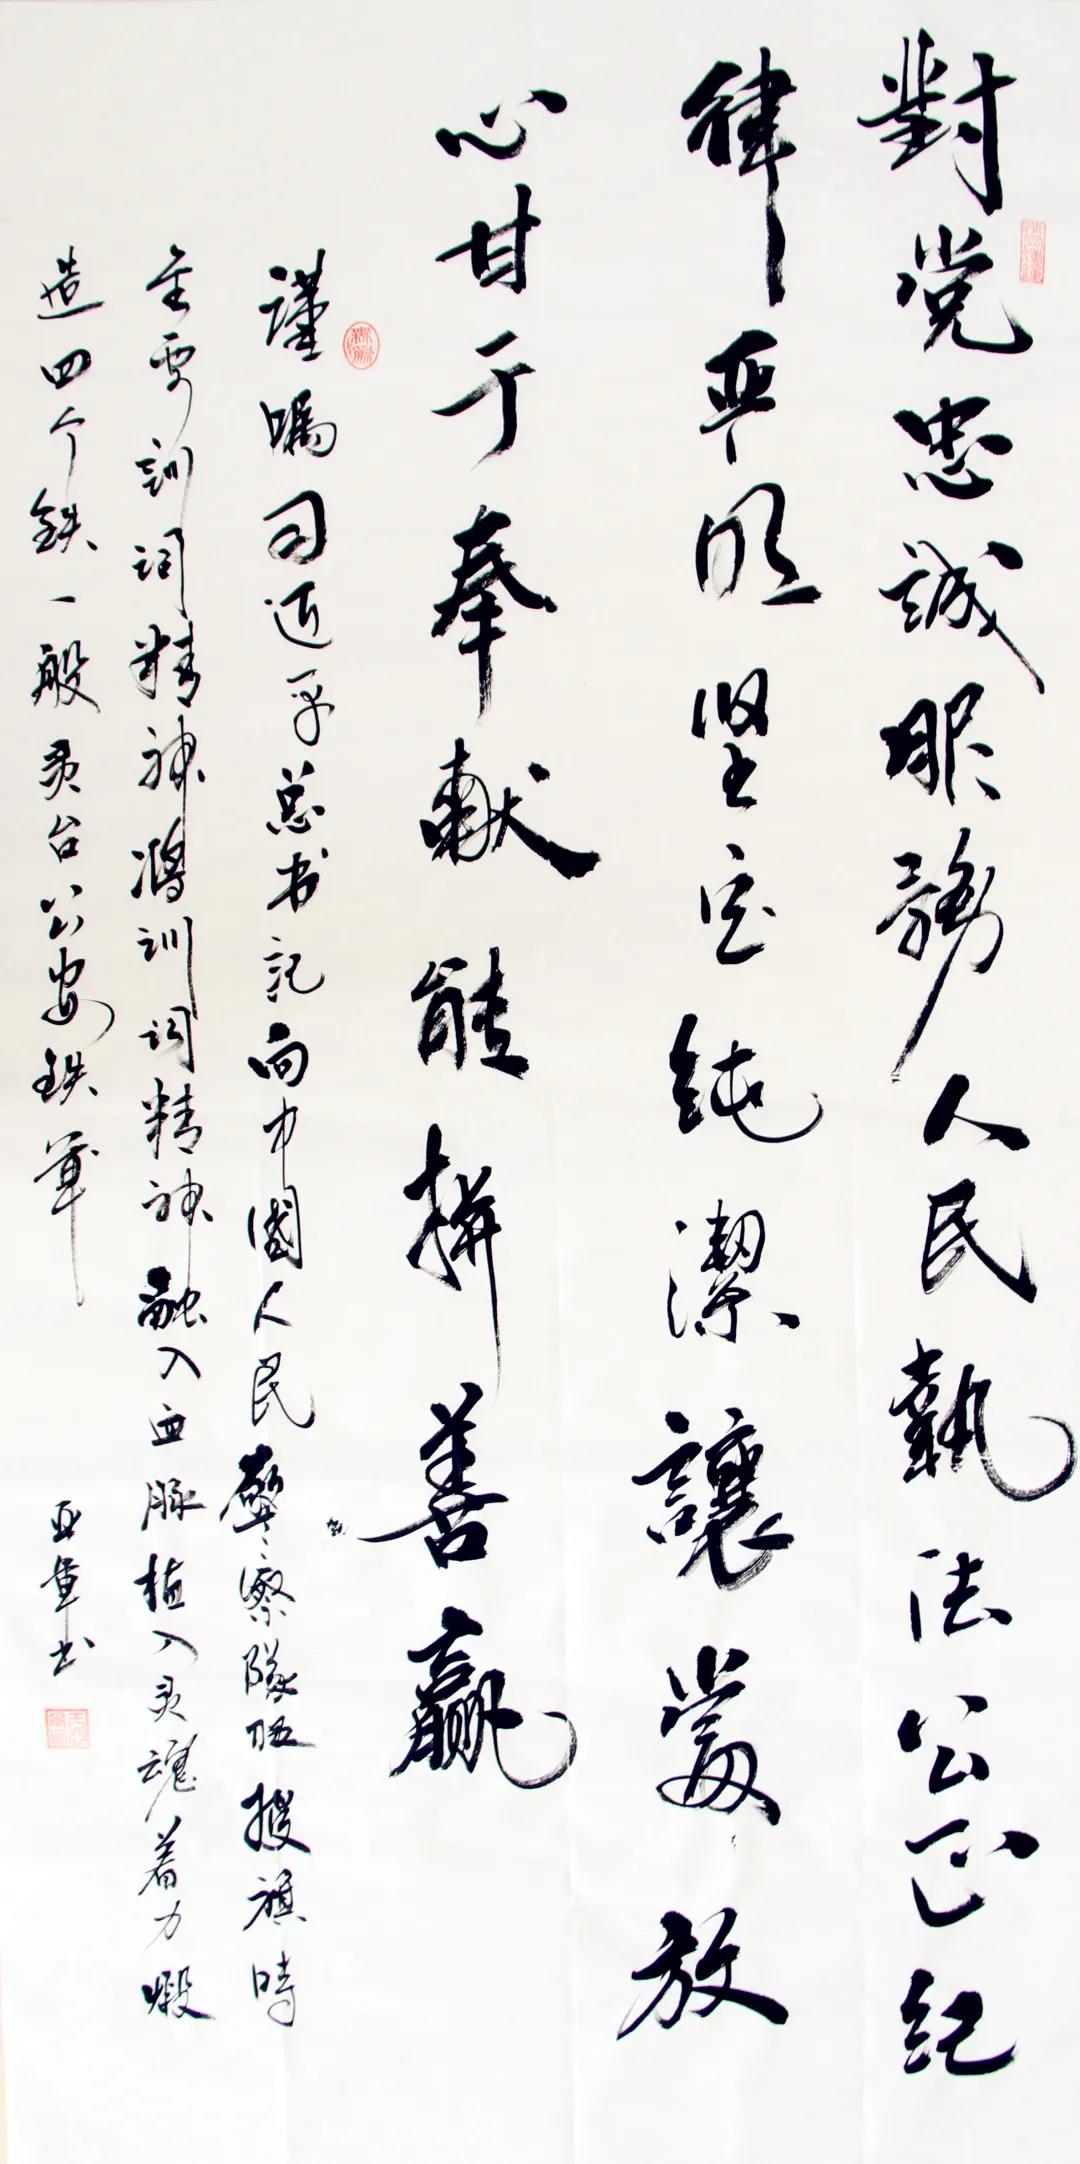 對党忠誠服務人民執法公正紀
律严明坚定纯潔讓党放
心甘于奉献能拼善赢
谨嘱习近平总书记向中國人民警察隊伍授旗時
重要訓词精神将訓词精神融入血脉植入灵魂着力煅
造四个铁一般灵台公安铁军
亚军书